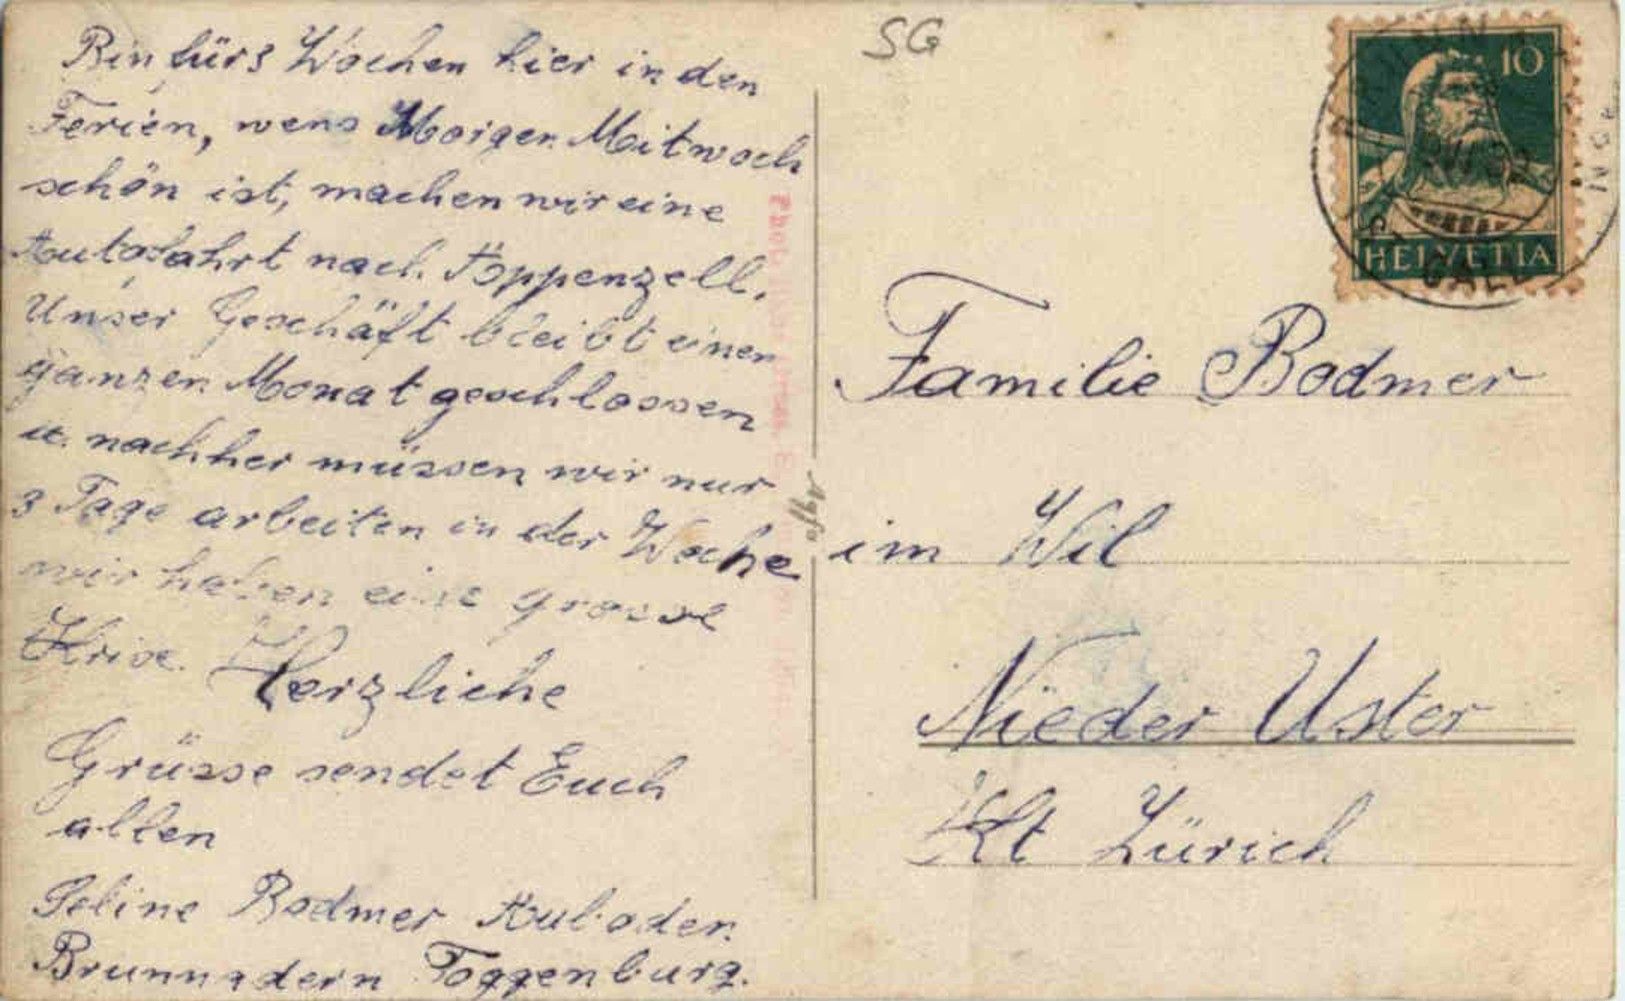 Bin fürs Wochen hier in den
Ferien, wens Morgen Mitwoch
schön ist, machen wir eine
Autofahrt nach Appenzell.
Unser Geschäft bleibt einen
ganzen Monat geschlossen
u. nachher müssen wir nur
3 Tage arbeiten in der Woche
wir haben eine grosse
Krise. Herzliche
Grüsse sendet Euch
allen
Seline Bodmer Auboden
Brunnadern Toggenburg.
Agfa
SG
10
HELVETIA
GALL
Familie Bodmer
im Wil
Nieder Uster
Kt Zürich